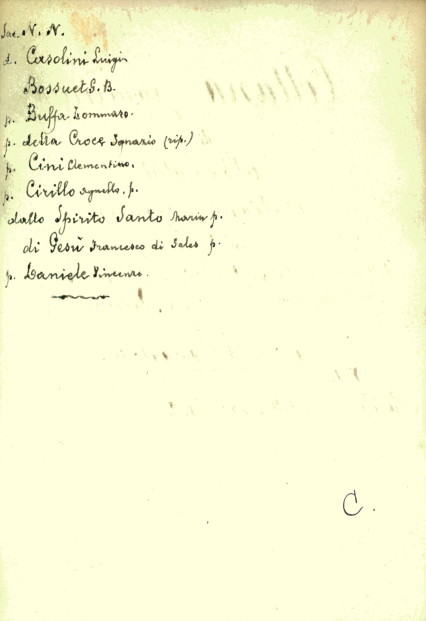 Sac. N. N.
d. Casolini Luigi
Bossuet G. B.
p. Buffa Tommaso.
p. della Croce Ignazio (rip.)
p. Cini Clementino.
p. Cirillo Agnello. p.
dallo Spirito Santo Maria p.
di Gesù Francesco di Sales p.
p. Daniele Vincenzo.
C.